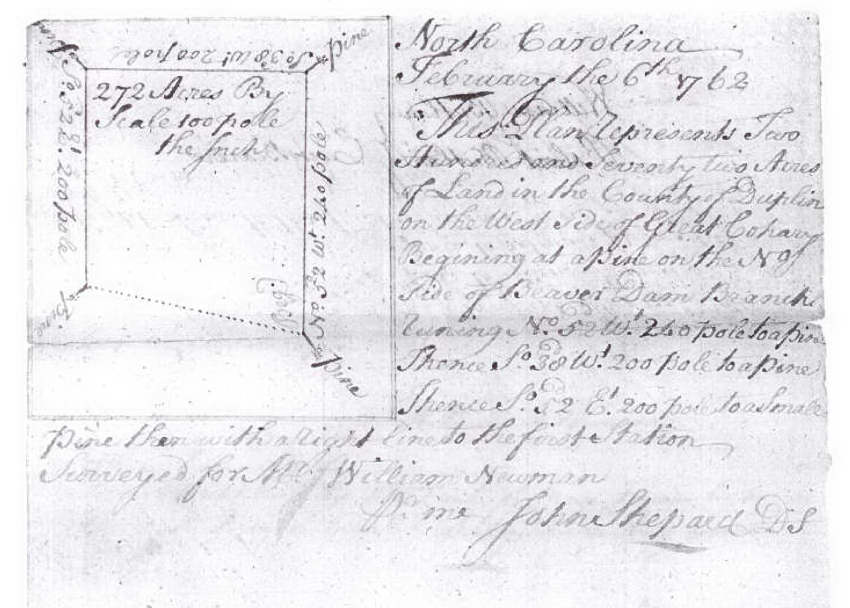 North Carolina
February the 6th 1762
This Plan Represents Two
Hundred and Seventy two Acres
of Land in the County of Duplin
on the West Side of Great Cohary
Begining at a pine on the No. of
Side of Beaver Dam Branch
Runing No. 52 Wt. 240 pole to a pine
Thence So. 38 Wt. 200 pole to a pine
Thence So. 52 Et. 200 pole to a Small
pine then with a right line to the first Station
Surveyed for Mr. William Newman
Pr. me John Shepard DS
So. 38 Wt. 200 pole
pine
272 Acres By
Scale 100 pole
the Inch
So. 52 Et. 200 pole
No. 52 Wt. 240 pole
pine
pine